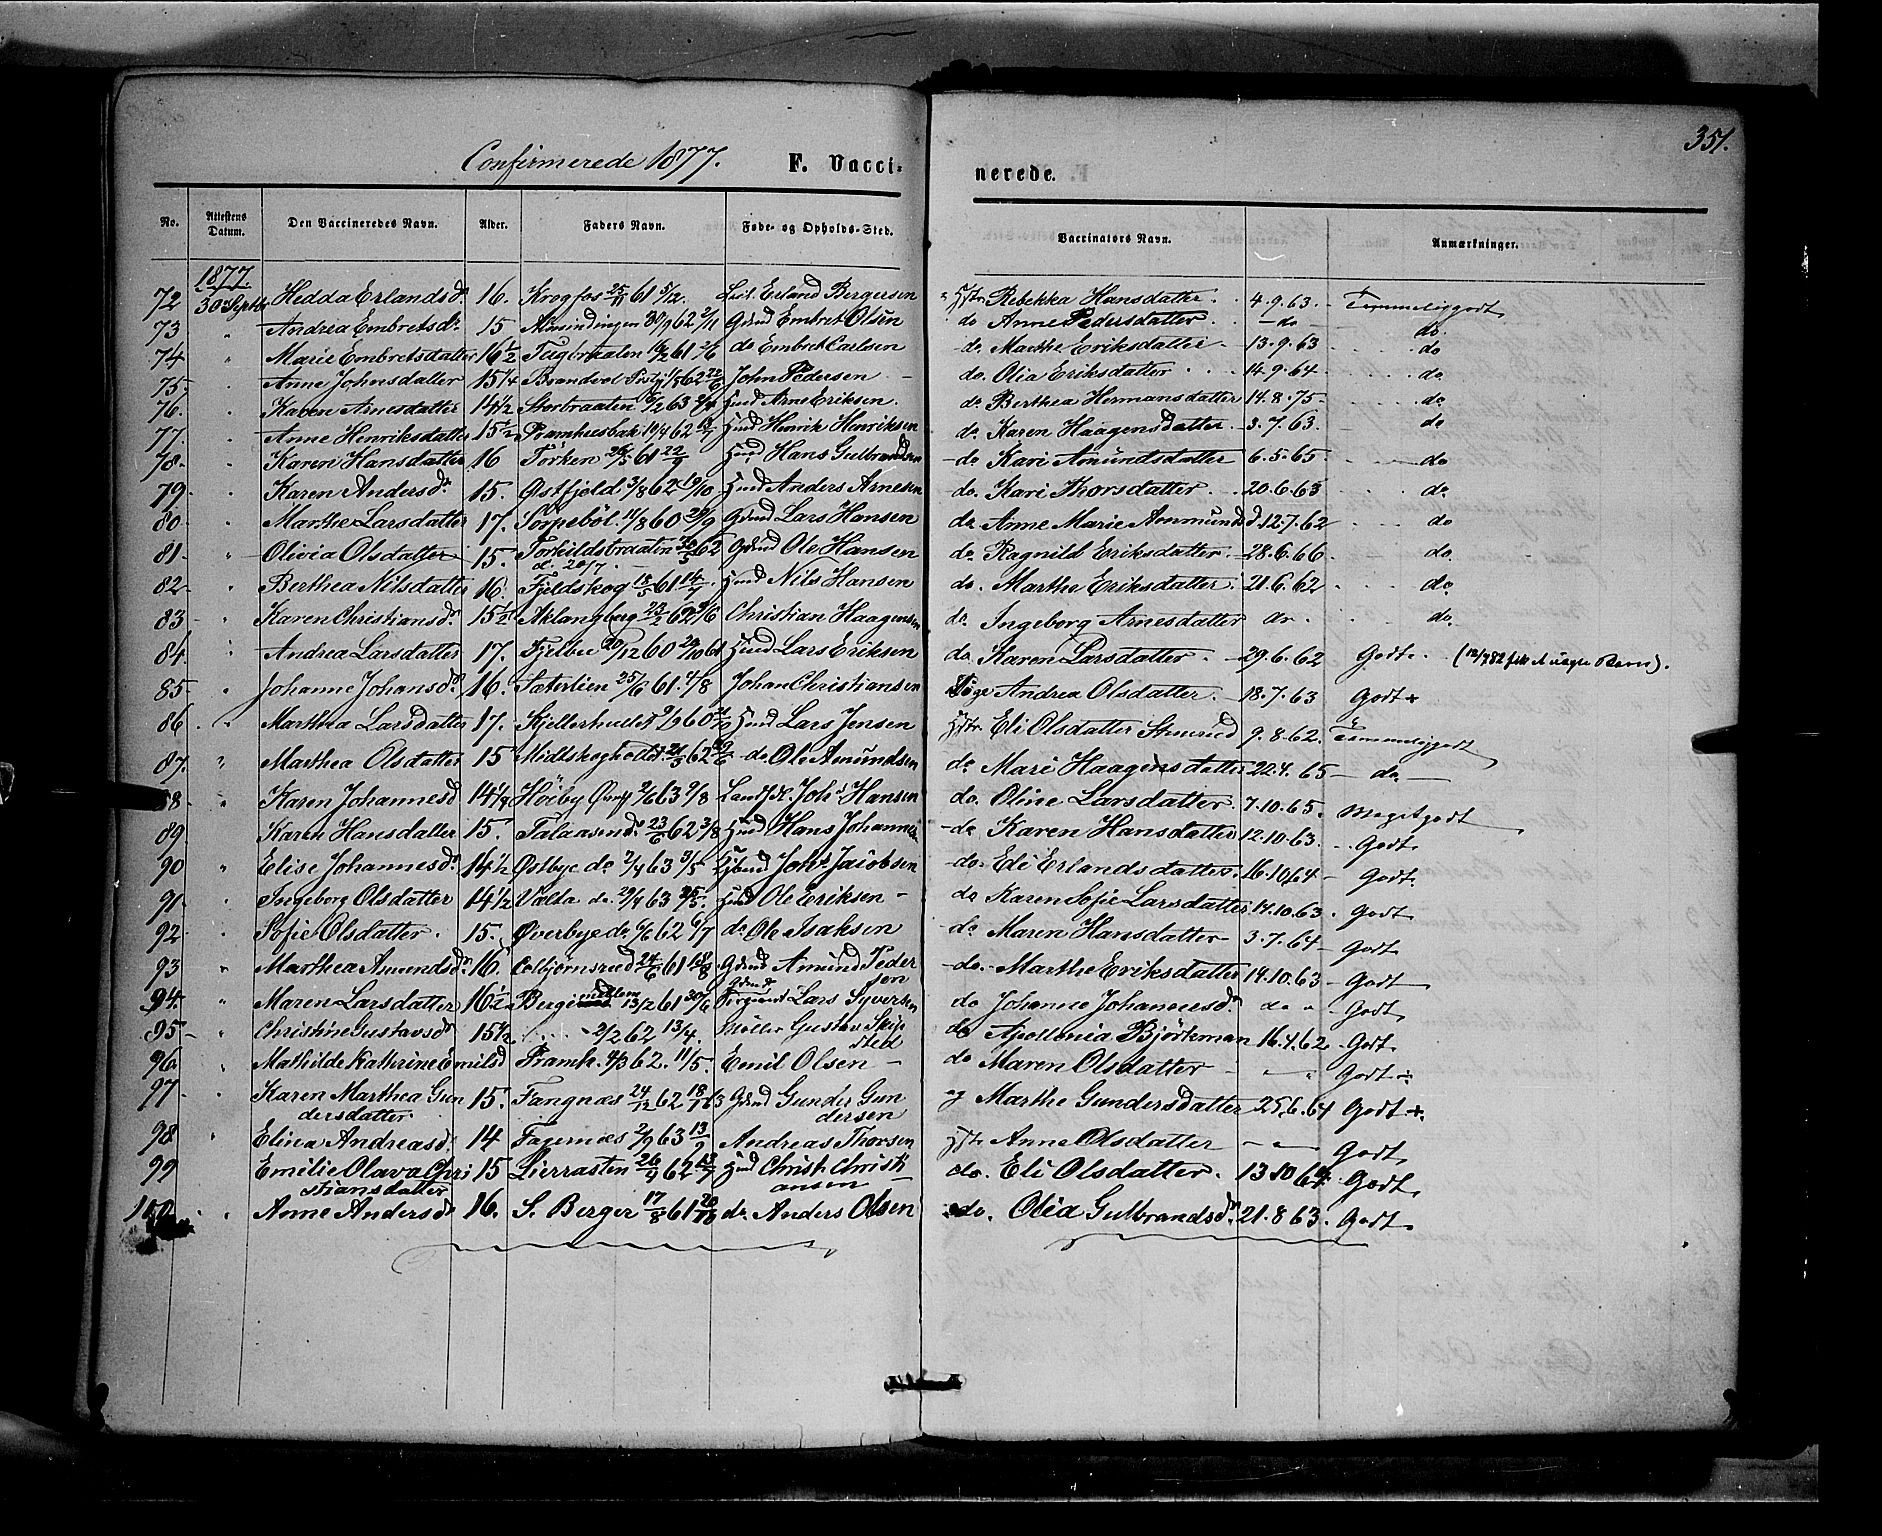 351.
Confirmerede 1877. F. Vacci-
nerede.
No. Attestens Datum. Den Vaccineredes Navn. Alder. Faders Navn. Føde- og Opholds-Sted. Vaccinators Navn. Anmærkninger.
1877.
72 30 Septbr Hedda Erlandsdr 16. Krogfos 25/11 61 5/12. Erland Bergersen Rebekka Hansdatter. 4.9.63. Temmeliggodt
73 " Andrea Embretsdr. 15 Almindingen 30/9 62 2/11 Gdmd Embret Olsen do Anne Pedersdatter. – do – do.
74 " Marie Embretsdatter 16 1/2 61 do Embret Carlsen do. Marthe Eriksdatter 13.9.63 do
75. " Anne Johnsdatter 15 1/4 Brandvol 62 22/6 John Pedersen – do. Olia Eriksdatter 14.9.64 do.
76. " Karen Arnesdatter 14 1/2 Storbraaten 63 Hmd Arne Eriksen. do. Berthea Hermansdatter 14.8.75. do.
77. " Anne Henriksdatter 15 1/2 19/4 62 Hmd Henrik Henriksen do. Karen Haagensdatter. 3.7.63. do
78. " Karen Hansdatter 16 Torken 61 22/9 Hmd Hans Gulbrandsen do Kari Amundsdatter 6.5.65. do
79. " Karen Andersdr 15. Østfjeld 3/8 62 19/10 Hmd Anders Arnesen do. Kari Thorsdatter. 20.6.63 do.
80. " Marthe Larsdatter 17. Sorpebøl 11/8 60 29/9 Gdmd Lars Hansen do. Anne Marie Aamundsd. 12.7.62 do
81. " Olivia Olsdatter 15. Torkildsbraaten 62 Gdmd Ole Hansen do. Ragnild Eriksdatter. 28.6.66 do.
d. 20/7.
82. " Berthea Nilsdatter 16. Fjeldskog 13/5 61 14/7. Hmd Nils Hansen do. Marthe Eriksdatter. 21.6.62 do.
83 " Karen Christiansdr. 15 1/2 Aklangberg 23/2 62 9/6 Christian Haagensen do. Ingeborg Arnesdatter do. do.
84. " Andrea Larsdatter 17. 20/12 60 61 Hmd Lars Eriksen do. Karen Larsdatter. 29.6.62 Godt.
85. " Johanne Johansdr. 16. Sæterlien 25/6 61. 4/8 Johan Christiansen Andrea Olsdatter. 18.7.63 Godt +
86 " Marthea Larsdatter 17. 60 Hmd Lars Jensen Eli Olsdatter 9.8.62. Temmeliggodt
87. " Marthea Olsdatter 15 62 do Ole Amundsen do. Mari Haagensdatter 22.4.65 – do –
88. " Karen Johannesd 14 1/4 Høiby 2/6 63 9/8 Hansen do. Oline Larsdatter. 7.10.65. Megetgodt
89. " Karen Hansdatter 15. 23/6 62 3/8 Hmd Hans Johannes do. Karen Hansdatter 12.10.63. Godt
90 " Elise Johannesdr. 14 1/2 Østbye do 2/4 63 3/5 Joh. Jacobsen do. Eli Erlandsdatter. 16.10.64 Godt.
91. " Ingeborg Olsdatter 14 1/2 Valta do. 29/4 63 25/5. Hmd Ole Eriksen – do. Karen Sofie Larsdatter 14.10.63. Godt
92. " Sofie Olsdatter. 15. Øverbye do. 6/6 62 6/7 do. Ole Isaksen do. Maren Hansdatter 3.7.64 Godt
93 " Marthea Amundsdr. 16. Colbjørnsrud 24/6 61 18/8 Gdmd Amund Peder
sen do. Marthe Eriksdatter 14.10.63 Godt
94. " Maren Larsdatter 16 1/2 Berger 13/2 61 Lars Syversen do Johanne Johannesdr. do " Godt
95 " Christine Gustavsdr 15 1/2 2/2 62 13/4. Møller Gustav Skjp
sted do Apollonia Björkman 16.4.62 Godt
96. " Mathilde Kathrine Emilsd Framh. 4/3 62. 11/5. Emil Olsen – do Maren Olsdatter – Godt
97 " Karen Marthea Gun
dersdatter. 15. Fangnæs 24/12 62 63 Gdmd Gunder Gun
dersen og Marthe Gundersdatter 25.6.64 Godt +
98. " Elina Andreasd. 14 Fagernæs 2/9 63 13/9 Andreas Thorsen Anne Olsdatter – Godt
99 Emilie Olava Chri
stiansdatter 15 Lierrasten 26/4 62 Hmd Christ. Christi
ansen do. Eli Olsdatter. 13.10.64. Godt
100. " Anne Andersdr 16. S. Berger 17/8 61 20/10 do. Anders Olsen do. Olia Gulbrandsdr. 21.8.63. Godt